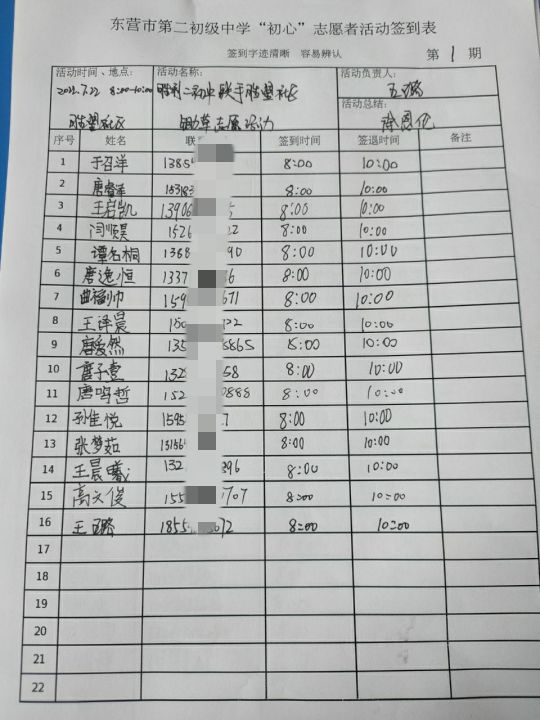 东营市第二初级中学“初心”志愿者活动签到表
签到字迹清晰 容易辨认 第 1 期
活动时间、地点： 活动名称： 活动负责人：
2022.7.22 8:00-10:00 胜利二初中联手胜盟社区 王璐
活动总结：
胜盟社区 锄草志愿活动
序号 姓名 签到时间 签退时间 备注
1 于召洋 1385 8:00 10:00
2 唐睿泽 15383 8:00 10:00
3 王启凯 13906 8:00 10:00
4 闫顺昊 1526 22 8:00 10:00
5 谭名桐 1368 90 8:00 10:00
6 唐逸恒 1337 6 8:00 10:00
7 曲福帅 159 671 8:00 10:00
8 王译晨 122 8:00 10:00
9 唐安然 135 8865 8:00 10:00
10 唐子壹 132 58 8:00 10:00
11 唐鸣哲 152 0888 8:00 10:00
12 孙佳悦 1595 7 8:00 10:00
13 张梦茹 13156 8:00 10:00
14 王晨曦 132 396 8:00 10:00
15 高文俊 155 1707 8:00 10:00
16 王璐 1855 672 8:00 10:00
17
18
19
20
21
22